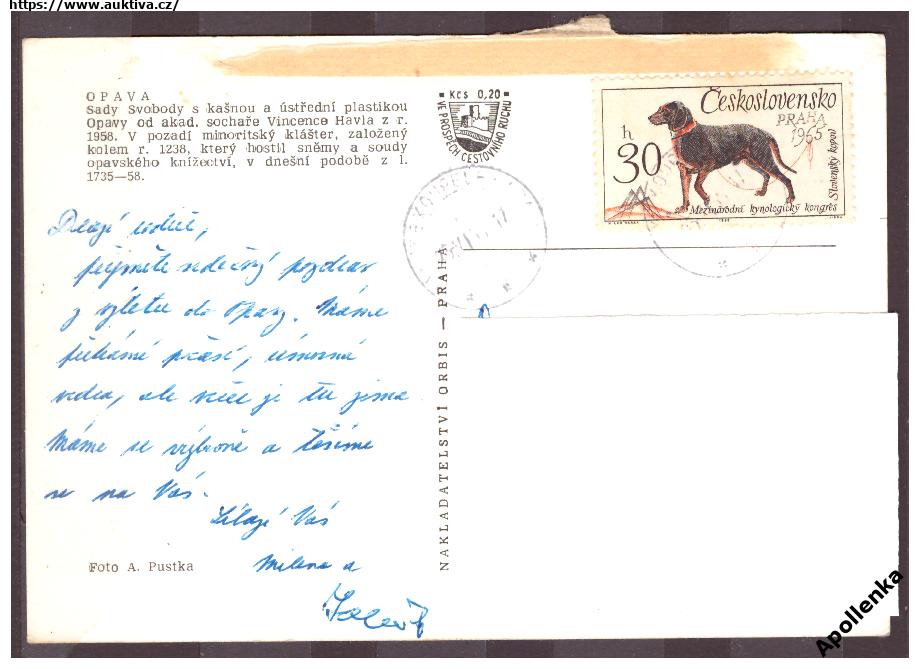 https://www.auktiva.cz/
OPAVA
Sady Svobody s kašnou a ústřední plastikou
Opavy od akad. sochaře Vincence Havla z r.
1958. V pozadí minoritský klášter, založený
kolem r. 1238, který hostil sněmy a soudy
opavského knížectví, v dnešní podobě z l.
1735—58.
Kčs 0,20
VE PROSPĚCH CESTOVNÍHO RUCHU
Československo
PRAHA
1965
h
30
Slovenský kopov
Mezinárodní kynologický kongres
Drazí rodiče,
přijměte srdečný pozdrav
z výletu do Opavy. Máme
překrásné počasí, úmorná
vedra, ale večer je tu zima
Máme se výborně a těšíme
se na Vás.
Líbají Vás
Milena a
NAKLADATELSTVÍ ORBIS — PRAHA
Foto A. Pustka
Apollenka